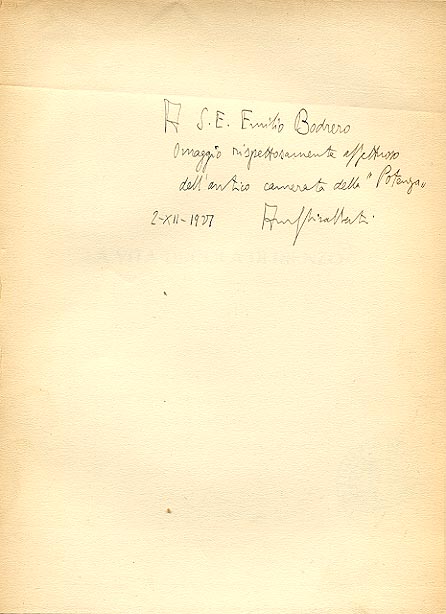 A S. E. Emilio Bodrero
Omaggio rispettosamente affettuoso
dell'antico camerata della "Potenza„
2-XII-1927